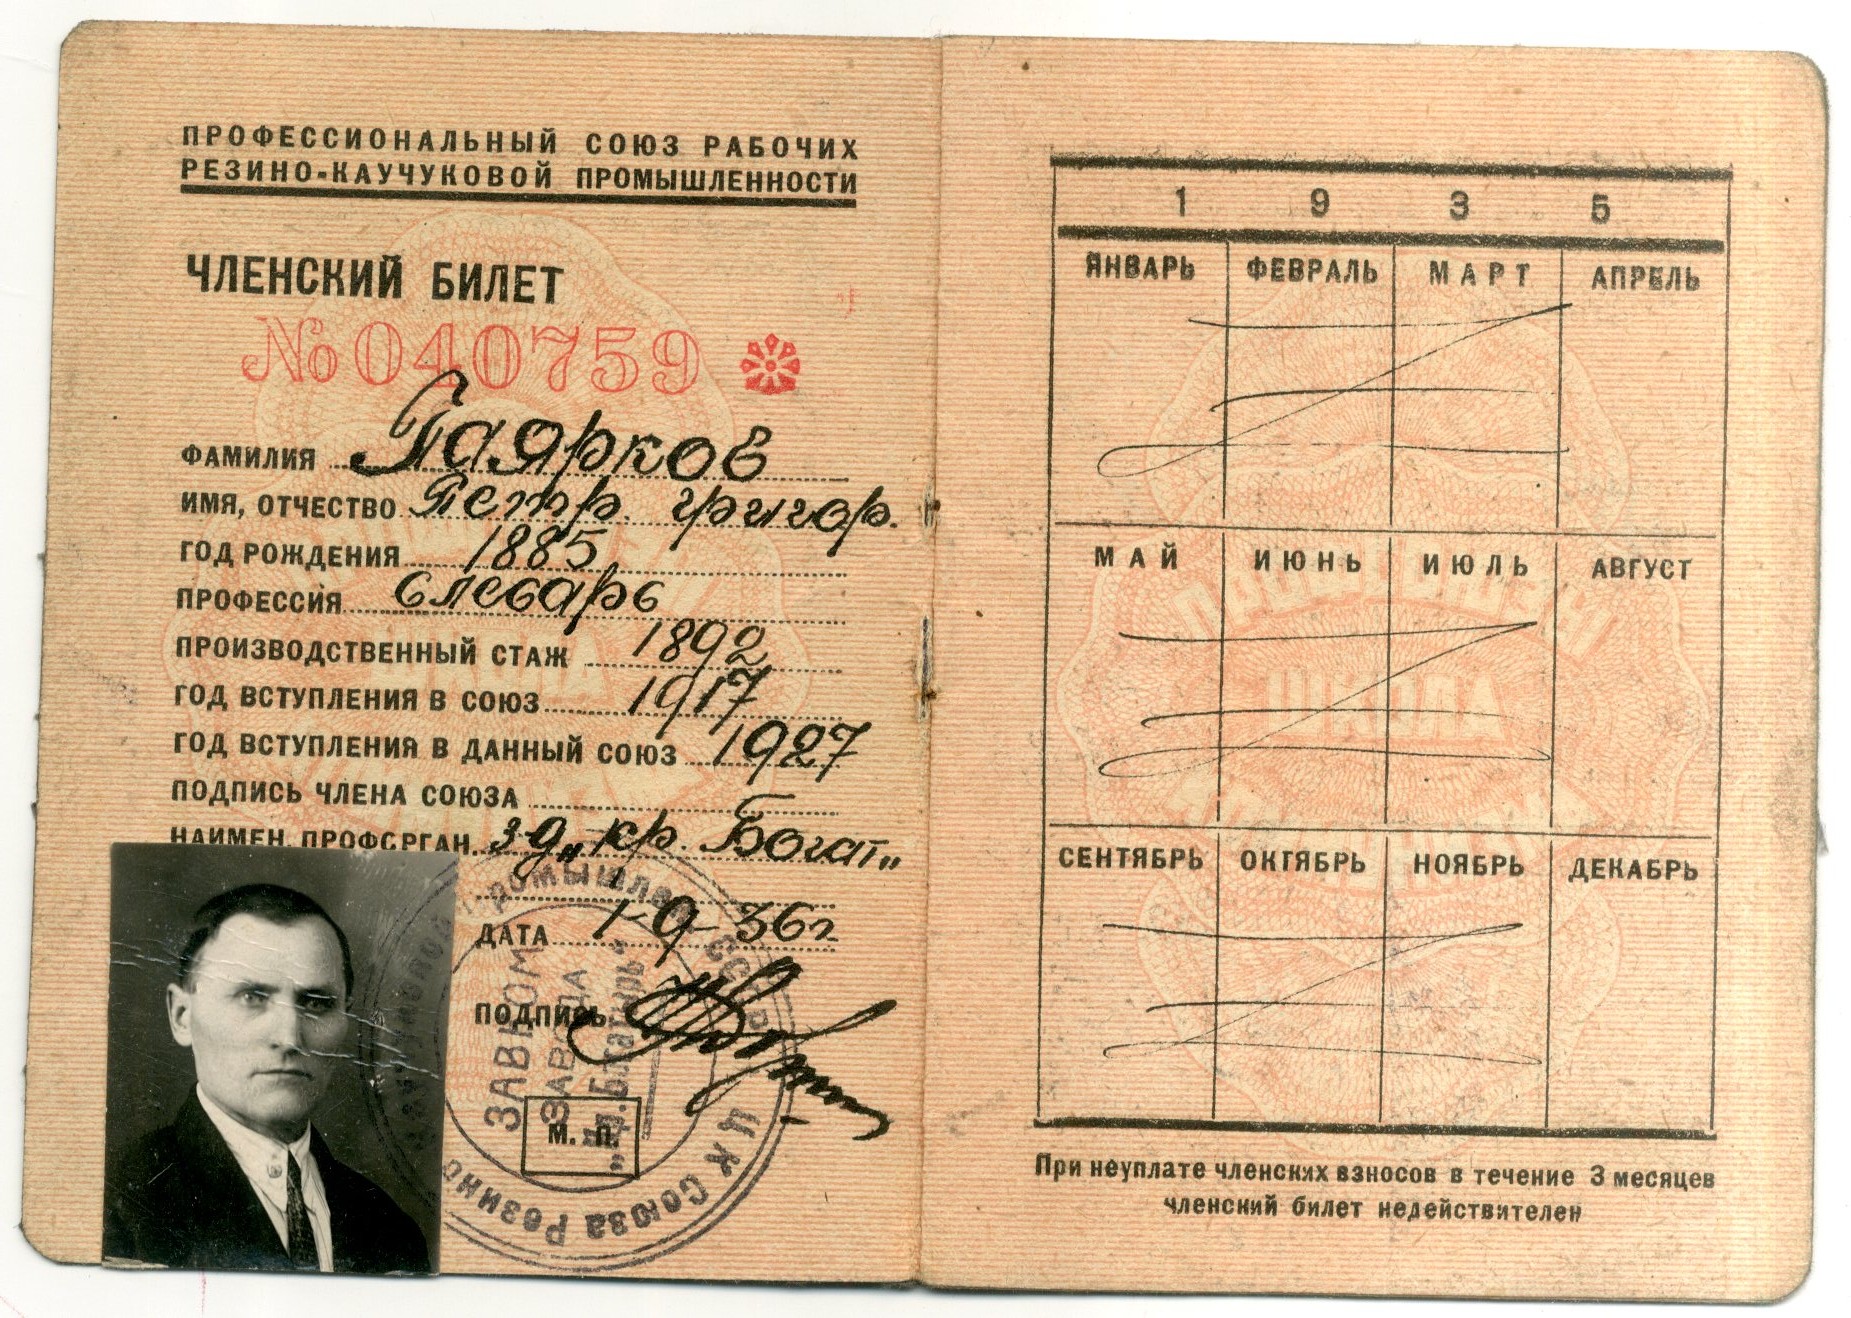 ПРОФЕССИОНАЛЬНЫЙ СОЮЗ РАБОЧИХ
РЕЗИНО-КАУЧУКОВОЙ ПРОМЫШЛЕННОСТИ
ЧЛЕНСКИЙ БИЛЕТ
№ 040759
ФАМИЛИЯ Гаярков
ИМЯ, ОТЧЕСТВО Петр Григор.
ГОД РОЖДЕНИЯ 1885
ПРОФЕССИЯ Слесарь
ПРОИЗВОДСТВЕННЫЙ СТАЖ 1892
ГОД ВСТУПЛЕНИЯ В СОЮЗ 1917
ГОД ВСТУПЛЕНИЯ В ДАННЫЙ СОЮЗ 1927
ПОДПИСЬ ЧЛЕНА СОЮЗА
НАИМЕН. ПРОФОРГАН. з-д „Кр. Богат"
ДАТА 1-9-36г
ПОДПИСЬ
М. П.
ЗАВКОМ
ЗАВОДА
ЦК Союза Резино
1 9 3 5
ЯНВАРЬ ФЕВРАЛЬ МАРТ АПРЕЛЬ
МАЙ ИЮНЬ ИЮЛЬ АВГУСТ
СЕНТЯБРЬ ОКТЯБРЬ НОЯБРЬ ДЕКАБРЬ
ПРОФСОЮЗЫ
ШКОЛА
КОММУНИЗМА
При неуплате членских взносов в течение 3 месяцев
членский билет недействителен